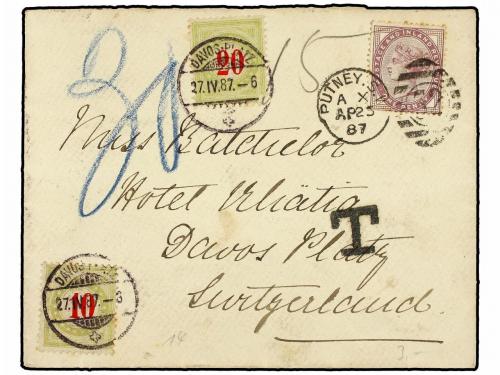 30
15
DAVOS-PLATZ
20
27.IV.87.-6
PUTNEY.S.
A X
AP 25
87
Miss Batchelor
Hotel Rhätia
Davos Platz
Switzerland
T
DAVOS-PLATZ
10
27.IV.87.-3
14
3.-